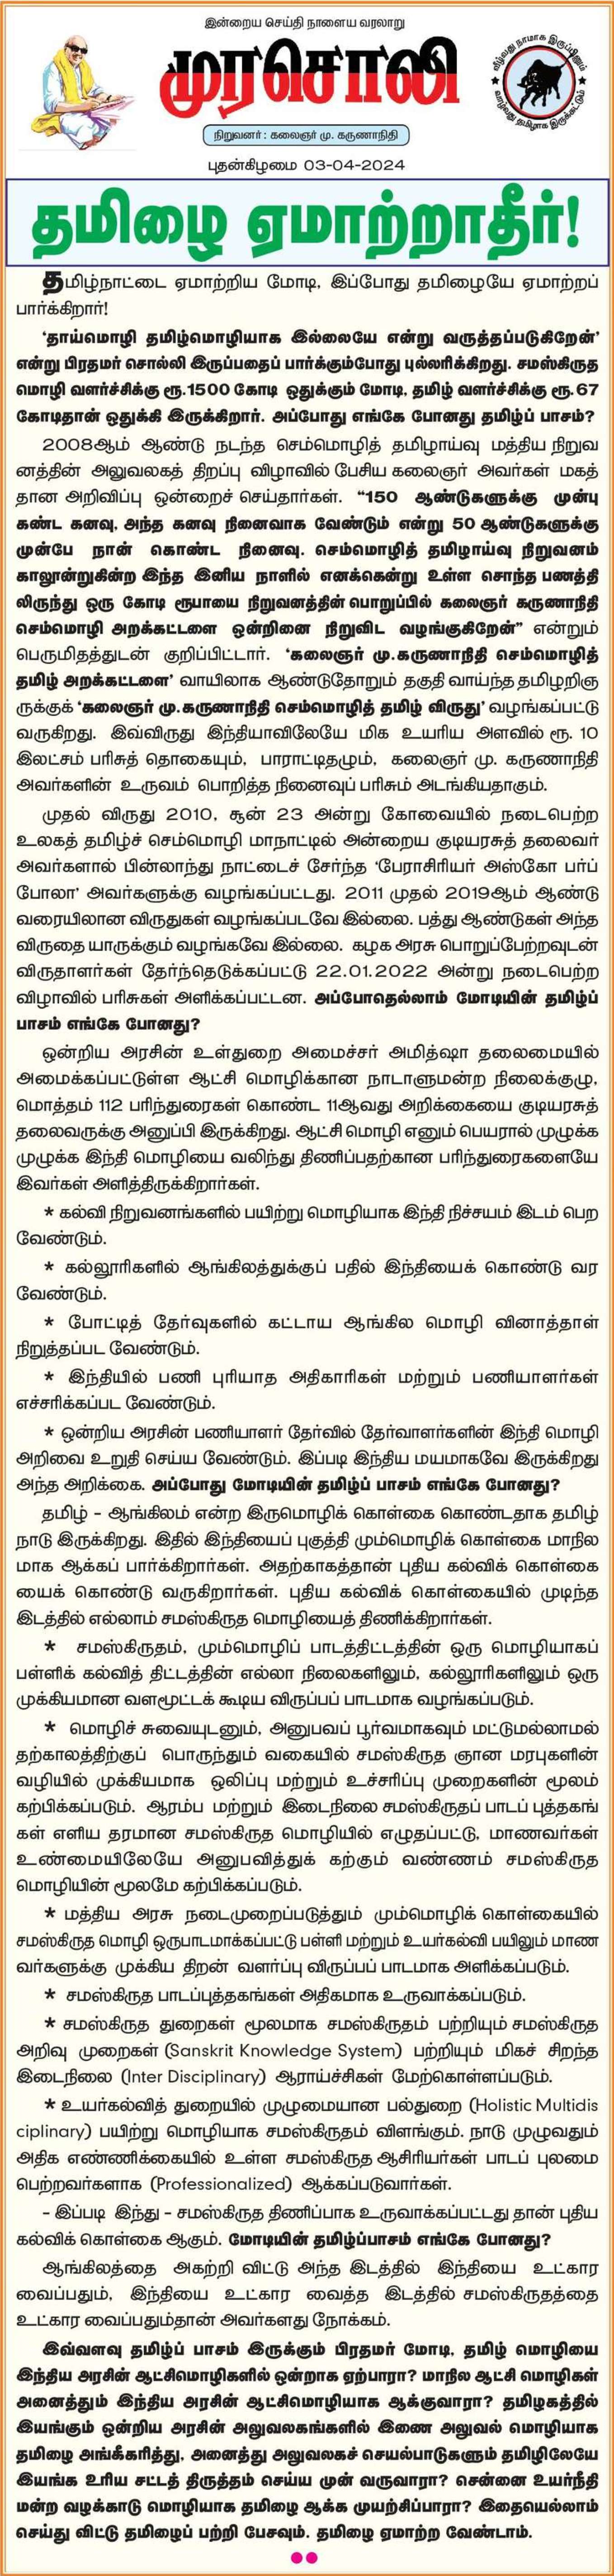 இன்றைய செய்தி நாளைய வரலாறு
முரசொலி
வீழ்வது நாமாக இருப்பினும்
வாழ்வது தமிழாக இருக்கட்டும்
நிறுவனர் : கலைஞர் மு. கருணாநிதி
புதன்கிழமை 03-04-2024
தமிழை ஏமாற்றாதீர்!
தமிழ்நாட்டை ஏமாற்றிய மோடி, இப்போது தமிழையே ஏமாற்றப்
பார்க்கிறார்!
‘தாய்மொழி தமிழ்மொழியாக இல்லையே என்று வருத்தப்படுகிறேன்’
என்று பிரதமர் சொல்லி இருப்பதைப் பார்க்கும்போது புல்லரிக்கிறது. சமஸ்கிருத
மொழி வளர்ச்சிக்கு ரூ.1500 கோடி ஒதுக்கும் மோடி, தமிழ் வளர்ச்சிக்கு ரூ.67
கோடிதான் ஒதுக்கி இருக்கிறார். அப்போது எங்கே போனது தமிழ்ப் பாசம்?
2008ஆம் ஆண்டு நடந்த செம்மொழித் தமிழாய்வு மத்திய நிறுவ
னத்தின் அலுவலகத் திறப்பு விழாவில் பேசிய கலைஞர் அவர்கள் மகத்
தான அறிவிப்பு ஒன்றைச் செய்தார்கள். “150 ஆண்டுகளுக்கு முன்பு
கண்ட கனவு, அந்த கனவு நினைவாக வேண்டும் என்று 50 ஆண்டுகளுக்கு
முன்பே நான் கொண்ட நினைவு. செம்மொழித் தமிழாய்வு நிறுவனம்
காலூன்றுகின்ற இந்த இனிய நாளில் எனக்கென்று உள்ள சொந்த பணத்தி
லிருந்து ஒரு கோடி ரூபாயை நிறுவனத்தின் பொறுப்பில் கலைஞர் கருணாநிதி
செம்மொழி அறக்கட்டளை ஒன்றினை நிறுவிட வழங்குகிறேன்” என்றும்
பெருமிதத்துடன் குறிப்பிட்டார். ‘கலைஞர் மு.கருணாநிதி செம்மொழித்
தமிழ் அறக்கட்டளை’ வாயிலாக ஆண்டுதோறும் தகுதி வாய்ந்த தமிழறிஞ
ருக்குக் ‘கலைஞர் மு.கருணாநிதி செம்மொழித் தமிழ் விருது’ வழங்கப்பட்டு
வருகிறது. இவ்விருது இந்தியாவிலேயே மிக உயரிய அளவில் ரூ. 10
இலட்சம் பரிசுத் தொகையும், பாராட்டிதழும், கலைஞர் மு. கருணாநிதி
அவர்களின் உருவம் பொறித்த நினைவுப் பரிசும் அடங்கியதாகும்.
முதல் விருது 2010, சூன் 23 அன்று கோவையில் நடைபெற்ற
உலகத் தமிழ்ச் செம்மொழி மாநாட்டில் அன்றைய குடியரசுத் தலைவர்
அவர்களால் பின்லாந்து நாட்டைச் சேர்ந்த ‘பேராசிரியர் அஸ்கோ பர்ப்
போலா’ அவர்களுக்கு வழங்கப்பட்டது. 2011 முதல் 2019ஆம் ஆண்டு
வரையிலான விருதுகள் வழங்கப்படவே இல்லை. பத்து ஆண்டுகள் அந்த
விருதை யாருக்கும் வழங்கவே இல்லை. கழக அரசு பொறுப்பேற்றவுடன்
விருதாளர்கள் தேர்ந்தெடுக்கப்பட்டு 22.01.2022 அன்று நடைபெற்ற
விழாவில் பரிசுகள் அளிக்கப்பட்டன. அப்போதெல்லாம் மோடியின் தமிழ்ப்
பாசம் எங்கே போனது?
ஒன்றிய அரசின் உள்துறை அமைச்சர் அமித்ஷா தலைமையில்
அமைக்கப்பட்டுள்ள ஆட்சி மொழிக்கான நாடாளுமன்ற நிலைக்குழு,
மொத்தம் 112 பரிந்துரைகள் கொண்ட 11ஆவது அறிக்கையை குடியரசுத்
தலைவருக்கு அனுப்பி இருக்கிறது. ஆட்சி மொழி எனும் பெயரால் முழுக்க
முழுக்க இந்தி மொழியை வலிந்து திணிப்பதற்கான பரிந்துரைகளையே
இவர்கள் அளித்திருக்கிறார்கள்.
* கல்வி நிறுவனங்களில் பயிற்று மொழியாக இந்தி நிச்சயம் இடம் பெற
வேண்டும்.
* கல்லூரிகளில் ஆங்கிலத்துக்குப் பதில் இந்தியைக் கொண்டு வர
வேண்டும்.
* போட்டித் தேர்வுகளில் கட்டாய ஆங்கில மொழி வினாத்தாள்
நிறுத்தப்பட வேண்டும்.
* இந்தியில் பணி புரியாத அதிகாரிகள் மற்றும் பணியாளர்கள்
எச்சரிக்கப்பட வேண்டும்.
* ஒன்றிய அரசின் பணியாளர் தேர்வில் தேர்வாளர்களின் இந்தி மொழி
அறிவை உறுதி செய்ய வேண்டும். இப்படி இந்திய மயமாகவே இருக்கிறது
அந்த அறிக்கை. அப்போது மோடியின் தமிழ்ப் பாசம் எங்கே போனது?
தமிழ் – ஆங்கிலம் என்ற இருமொழிக் கொள்கை கொண்டதாக தமிழ்
நாடு இருக்கிறது. இதில் இந்தியைப் புகுத்தி மும்மொழிக் கொள்கை மாநில
மாக ஆக்கப் பார்க்கிறார்கள். அதற்காகத்தான் புதிய கல்விக் கொள்கை
யைக் கொண்டு வருகிறார்கள். புதிய கல்விக் கொள்கையில் முடிந்த
இடத்தில் எல்லாம் சமஸ்கிருத மொழியைத் திணிக்கிறார்கள்.
* சமஸ்கிருதம், மும்மொழிப் பாடத்திட்டத்தின் ஒரு மொழியாகப்
பள்ளிக் கல்வித் திட்டத்தின் எல்லா நிலைகளிலும், கல்லூரிகளிலும் ஒரு
முக்கியமான வளமூட்டக் கூடிய விருப்பப் பாடமாக வழங்கப்படும்.
* மொழிச் சுவையுடனும், அனுபவப் பூர்வமாகவும் மட்டுமல்லாமல்
தற்காலத்திற்குப் பொருந்தும் வகையில் சமஸ்கிருத ஞான மரபுகளின்
வழியில் முக்கியமாக ஒலிப்பு மற்றும் உச்சரிப்பு முறைகளின் மூலம்
கற்பிக்கப்படும். ஆரம்ப மற்றும் இடைநிலை சமஸ்கிருதப் பாடப் புத்தகங்
கள் எளிய தரமான சமஸ்கிருத மொழியில் எழுதப்பட்டு, மாணவர்கள்
உண்மையிலேயே அனுபவித்துக் கற்கும் வண்ணம் சமஸ்கிருத
மொழியின் மூலமே கற்பிக்கப்படும்.
* மத்திய அரசு நடைமுறைப்படுத்தும் மும்மொழிக் கொள்கையில்
சமஸ்கிருத மொழி ஒருபாடமாக்கப்பட்டு பள்ளி மற்றும் உயர்கல்வி பயிலும் மாண
வர்களுக்கு முக்கிய திறன் வளர்ப்பு விருப்பப் பாடமாக அளிக்கப்படும்.
* சமஸ்கிருத பாடப்புத்தகங்கள் அதிகமாக உருவாக்கப்படும்.
* சமஸ்கிருத துறைகள் மூலமாக சமஸ்கிருதம் பற்றியும் சமஸ்கிருத
அறிவு முறைகள் (Sanskrit Knowledge System) பற்றியும் மிகச் சிறந்த
இடைநிலை (Inter Disciplinary) ஆராய்ச்சிகள் மேற்கொள்ளப்படும்.
* உயர்கல்வித் துறையில் முழுமையான பல்துறை (Holistic Multidis
ciplinary) பயிற்று மொழியாக சமஸ்கிருதம் விளங்கும். நாடு முழுவதும்
அதிக எண்ணிக்கையில் உள்ள சமஸ்கிருத ஆசிரியர்கள் பாடப் புலமை
பெற்றவர்களாக (Professionalized) ஆக்கப்படுவார்கள்.
– இப்படி இந்து – சமஸ்கிருத திணிப்பாக உருவாக்கப்பட்டது தான் புதிய
கல்விக் கொள்கை ஆகும். மோடியின் தமிழ்ப்பாசம் எங்கே போனது?
ஆங்கிலத்தை அகற்றி விட்டு அந்த இடத்தில் இந்தியை உட்கார
வைப்பதும், இந்தியை உட்கார வைத்த இடத்தில் சமஸ்கிருதத்தை
உட்கார வைப்பதும்தான் அவர்களது நோக்கம்.
இவ்வளவு தமிழ்ப் பாசம் இருக்கும் பிரதமர் மோடி, தமிழ் மொழியை
இந்திய அரசின் ஆட்சிமொழிகளில் ஒன்றாக ஏற்பாரா? மாநில ஆட்சி மொழிகள்
அனைத்தும் இந்திய அரசின் ஆட்சிமொழியாக ஆக்குவாரா? தமிழகத்தில்
இயங்கும் ஒன்றிய அரசின் அலுவலகங்களில் இணை அலுவல் மொழியாக
தமிழை அங்கீகரித்து, அனைத்து அலுவலகச் செயல்பாடுகளும் தமிழிலேயே
இயங்க உரிய சட்டத் திருத்தம் செய்ய முன் வருவாரா? சென்னை உயர்நீதி
மன்ற வழக்காடு மொழியாக தமிழை ஆக்க முயற்சிப்பாரா? இதையெல்லாம்
செய்து விட்டு தமிழைப் பற்றி பேசவும். தமிழை ஏமாற்ற வேண்டாம்.